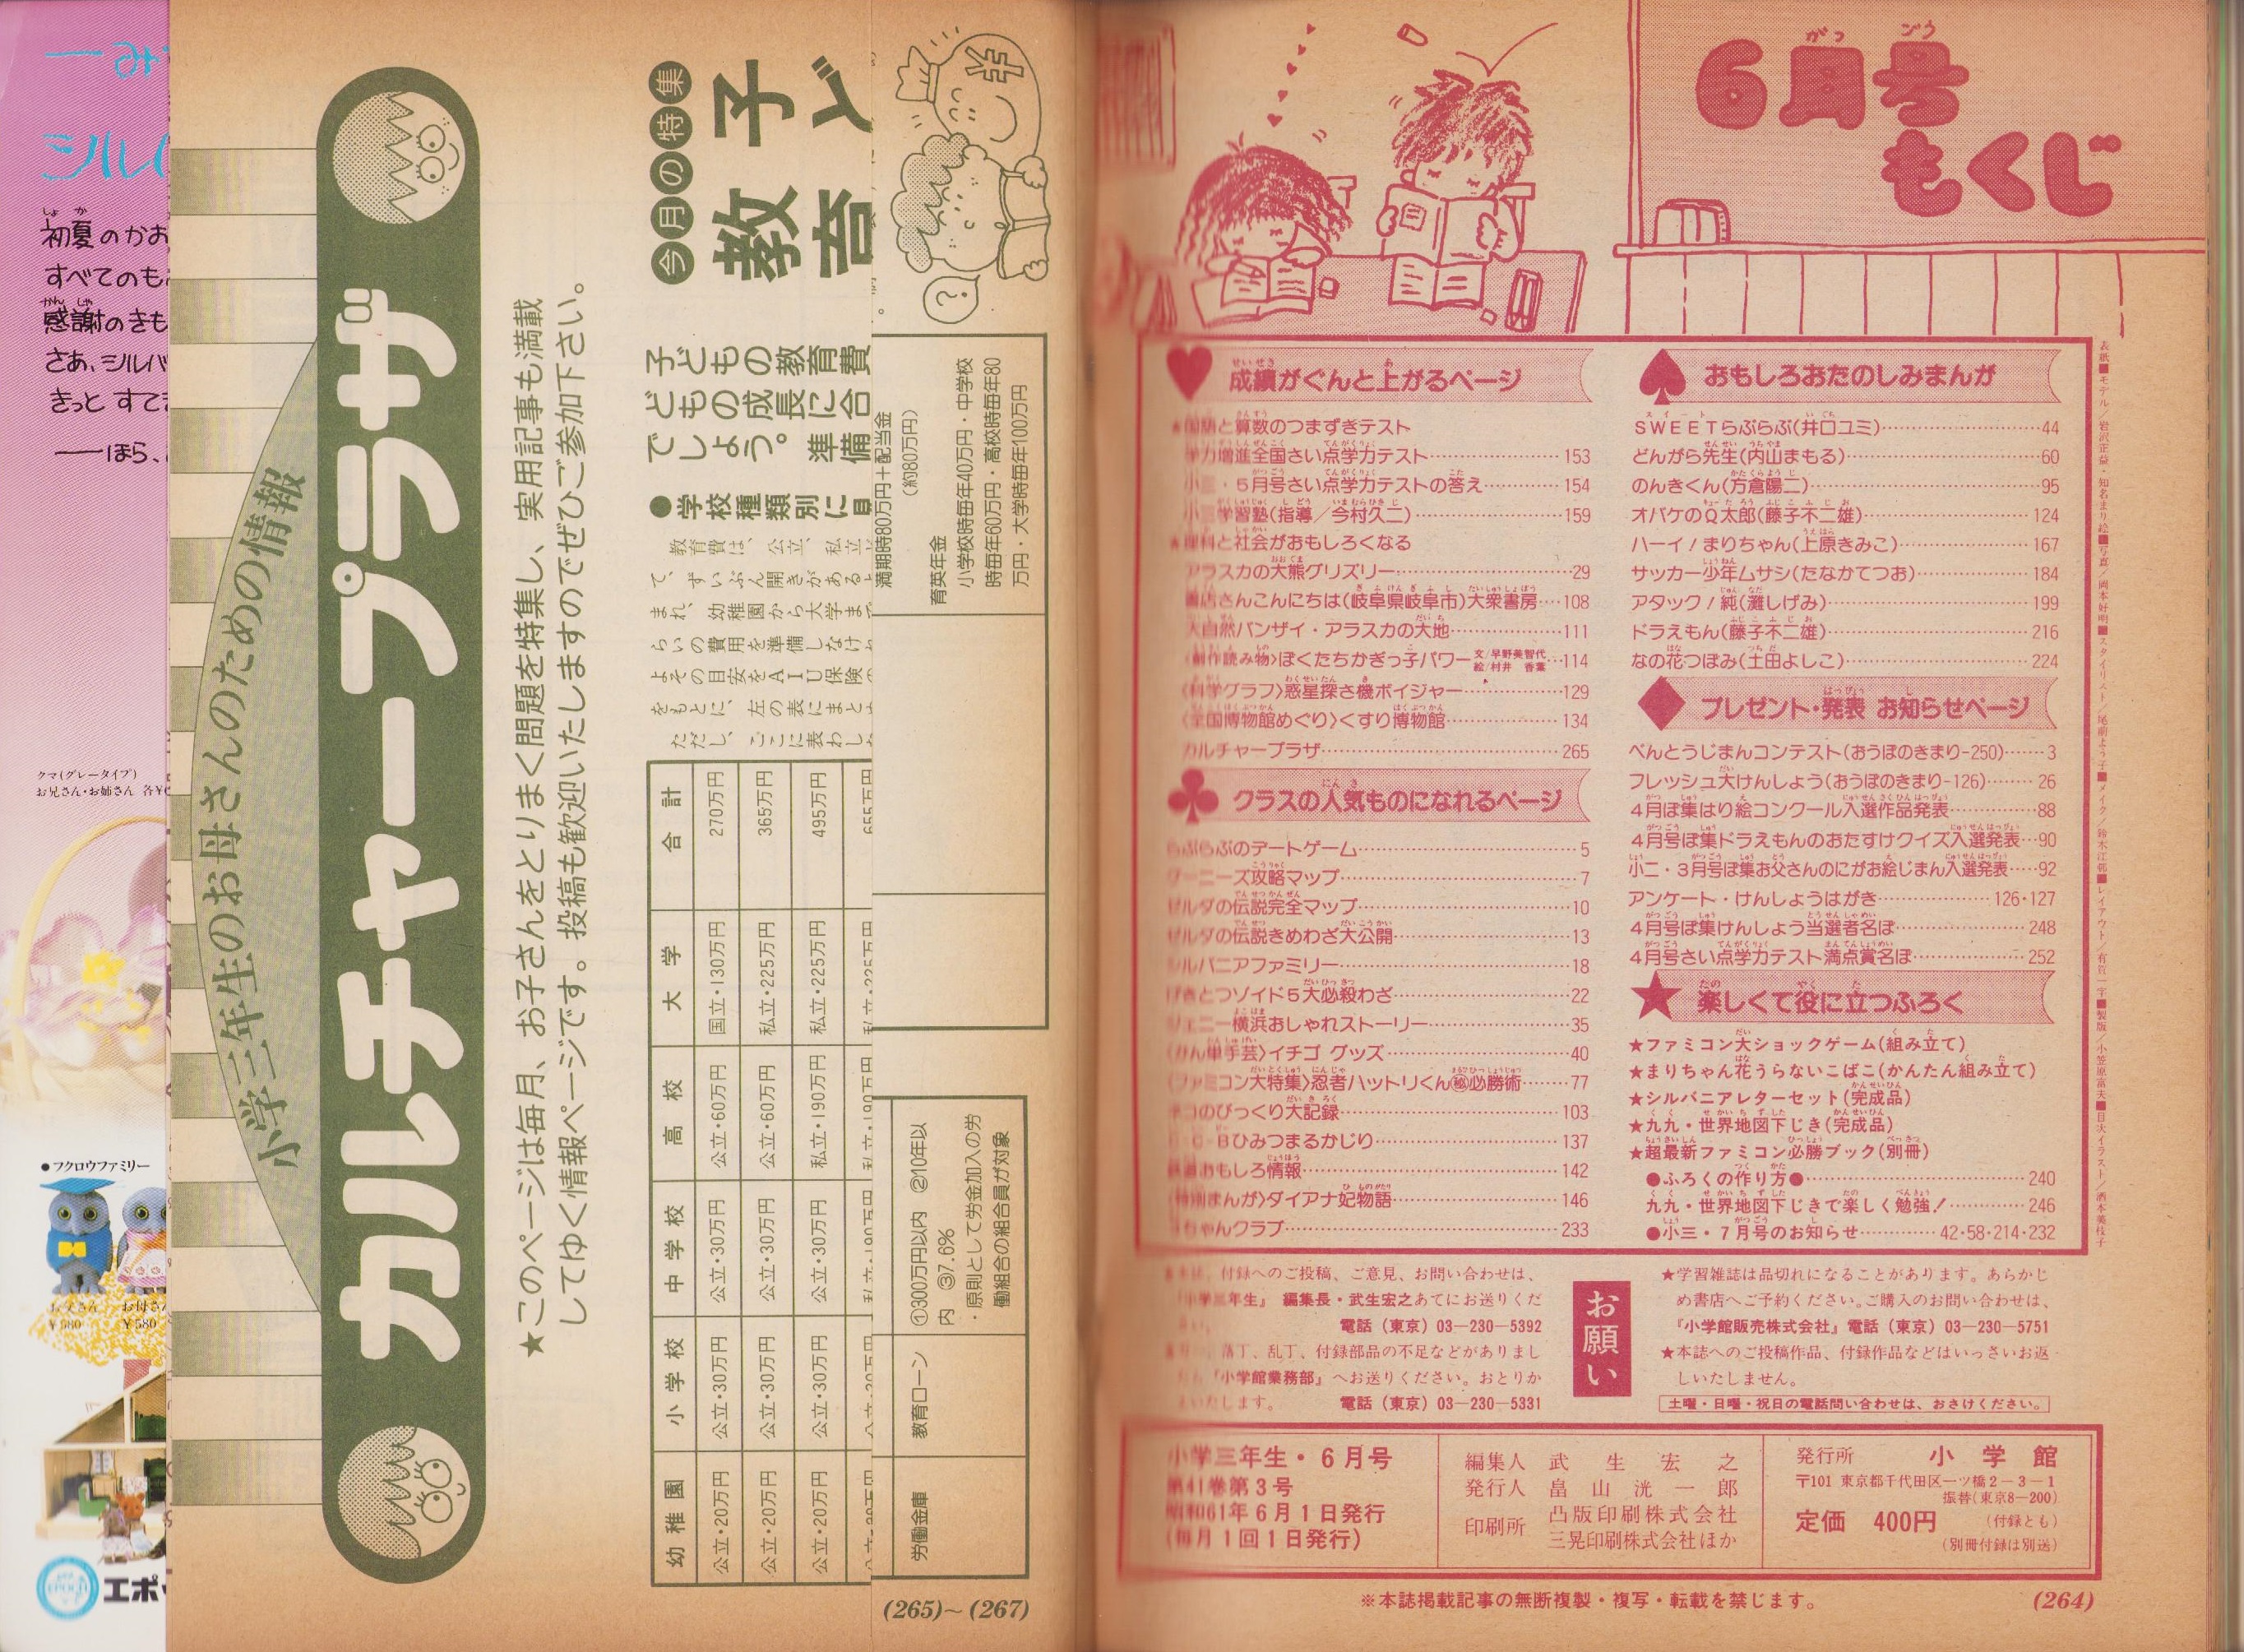 6月号
もくじ
成績がぐんと上がるページ
と算数のつまずきテスト
学力増進全国さい点学力テスト 153
小三・5月号さい点学力テストの答え 154
小三学習塾(指導／今村久二) 159
と社会がおもしろくなる
アラスカの大熊グリズリー 29
書店さんこんにちは(岐阜県岐阜市)大衆書房 108
大自然バンザイ・アラスカの大地 111
〈創作読み物〉ぼくたちかぎっ子パワー 文／早野美智代 絵／村井香葉 114
〈科学グラフ〉惑星探さ機ボイジャー 129
〈全国博物館めぐり〉くすり博物館 134
カルチャープラザ 265
クラスの人気ものになれるページ
らぶらぶのデートゲーム 5
グーニーズ攻略マップ 7
ゼルダの伝説完全マップ 10
ゼルダの伝説きめわざ大公開 13
シルバニアファミリー 18
げきとつゾイド5大必殺わざ 22
ジェニー横浜おしゃれストーリー 35
〈かん単手芸〉イチゴ グッズ 40
〈ファミコン大特集〉忍者ハットリくん㊙必勝術 77
ネコのびっくり大記録 103
C-C-Bひみつまるかじり 137
おもしろ情報 142
〈特別まんが〉ダイアナ妃物語 146
ちゃんクラブ 233
おもしろおたのしみまんが
SWEETらぶらぶ(井口ユミ) 44
どんがら先生(内山まもる) 60
のんきくん(方倉陽二) 95
オバケのQ太郎(藤子不二雄) 124
ハーイ！まりちゃん(上原きみこ) 167
サッカー少年ムサシ(たなかてつお) 184
アタック！純(灘しげみ) 199
ドラえもん(藤子不二雄) 216
なの花つぼみ(土田よしこ) 224
プレゼント・発表 お知らせページ
べんとうじまんコンテスト(おうぼのきまり-250) 3
フレッシュ大けんしょう(おうぼのきまり-126) 26
4月ぼ集はり絵コンクール入選作品発表 88
4月号ぼ集ドラえもんのおたすけクイズ入選発表 90
小二・3月号ぼ集お父さんのにがお絵じまん入選発表 92
アンケート・けんしょうはがき 126・127
4月号ぼ集けんしょう当選者名ぼ 248
4月号さい点学力テスト満点賞名ぼ 252
楽しくて役に立つふろく
★ファミコン大ショックゲーム(組み立て)
★まりちゃん花うらないこばこ(かんたん組み立て)
★シルバニアレターセット(完成品)
★九九・世界地図下じき(完成品)
★超最新ファミコン必勝ブック(別冊)
●ふろくの作り方● 240
九九・世界地図下じきで楽しく勉強！ 246
●小三・7月号のお知らせ 42・58・214・232
付録へのご投稿、ご意見、お問い合わせは、
『小学三年生』 編集長・武生宏之あてにお送りくだ
さい。 電話（東京）03―230―5392
落丁、乱丁、付録部品の不足などがありまし
たら『小学館業務部』へお送りください。おとりか
えいたします。 電話（東京）03―230―5331
お願い
★学習雑誌は品切れになることがあります。あらかじ
め書店へご予約ください。ご購入のお問い合わせは、
『小学館販売株式会社』電話（東京）03―230―5751
★本誌へのご投稿作品、付録作品などはいっさいお返
しいたしません。
土曜・日曜・祝日の電話問い合わせは、おさけください。
小学三年生・6月号
第41巻第3号
昭和61年6月1日発行
(毎月1回1日発行)
編集人 武生宏之
発行人 畠山滉一郎
印刷所 凸版印刷株式会社
三晃印刷株式会社ほか
発行所 小学館
〒101 東京都千代田区一ツ橋2―3―1
振替(東京8―200)
定価 400円 (付録とも)
(別冊付録は別送)
※本誌掲載記事の無断複製・複写・転載を禁じます。
(264)
小学三年生のお母さんのための情報
カルチャープラザ
★このページは毎月、お子さんをとりまく問題を特集し、実用記事も満載
してゆく情報ページです。投稿も歓迎いたしますのでぜひご参加下さい。
今月の特集
子ど
教育
子どもの教育費
どもの成長に合
でしょう。 準備
●学校種類別に
教育費は、公立、私立
て、ずいぶん開きがある
まれ、幼稚園から大学まで
らいの費用を準備しなけ
よその目安をAIU保険
をもとに、左の表にまと
ただし、ここに表わし
幼稚園 小学校 中学校 高校 大学 合計
公立・20万円 公立・30万円 公立・30万円 公立・60万円 国立・130万円 270万円
公立・20万円 公立・30万円 公立・30万円 公立・60万円 私立・225万円 365万円
公立・20万円 公立・30万円 公立・30万円 私立・190万円 私立・225万円 495万円
満期時80万円＋配当金
(約80万円)
育英年金
小学校時毎年40万円・中学校
時毎年60万円・高校時毎年80
万円・大学時毎年100万円
労働金庫 教育ローン
①300万円以内 ②10年以
内 ③7.6%
・原則として労金加入の労
働組合の組合員が対象
(265)～(267)
初夏のかお
すべてのも
感謝のきも
さあ、シルバ
きっと すてき
――ほら、
クマ(グレータイプ)
お兄さん・お姉さん 各¥
●フクロウファミリー
お父さん ¥580
お母さん ¥580
EPOCH
エポ